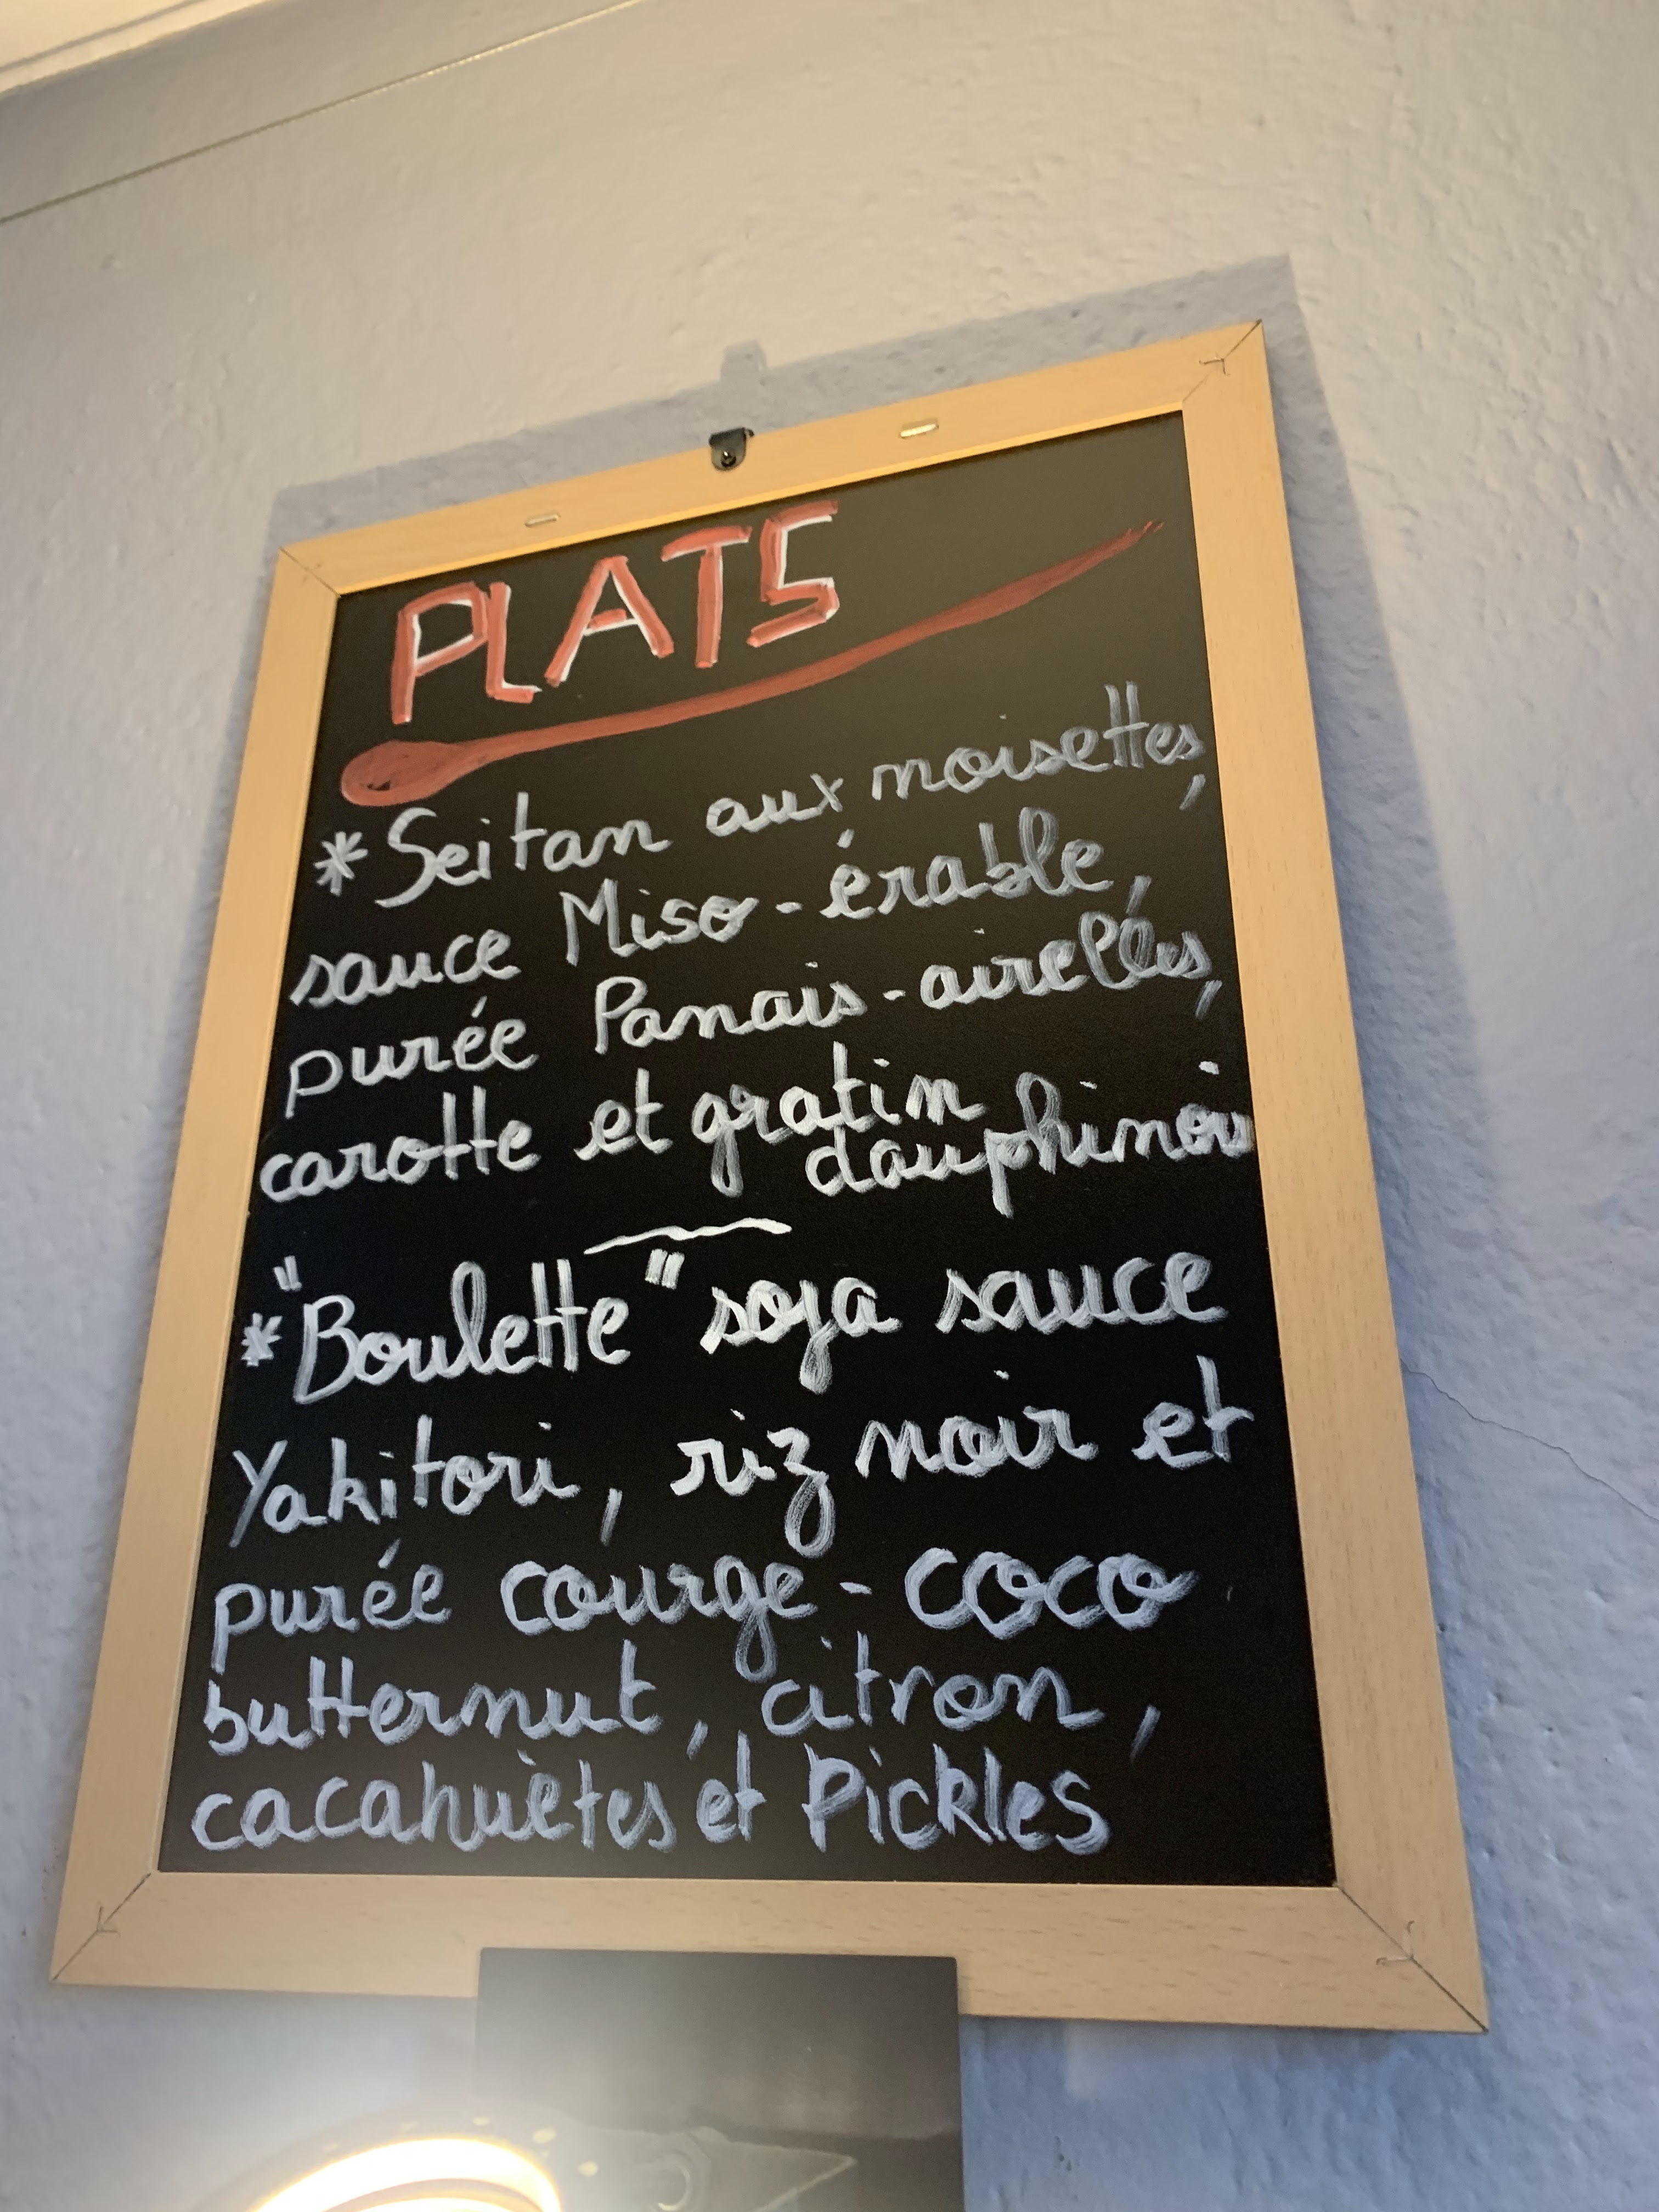 PLATS
* Seitan aux noisettes,
sauce Miso-érable,
purée Panais-airelles,
carotte et gratin
dauphinois
* "Boulette" soja sauce
Yakitori, riz noir et
purée courge-coco
butternut, citron,
cacahuètes et Pickles